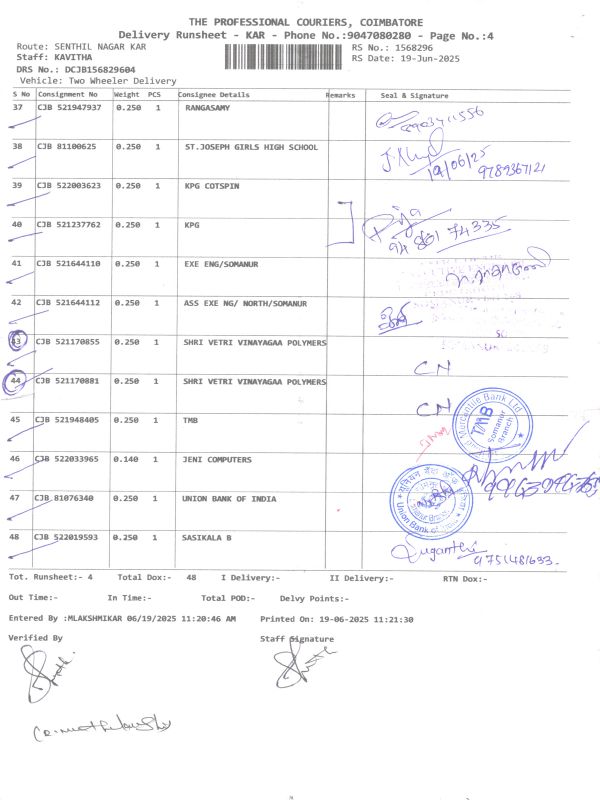 THE PROFESSIONAL COURIERS, COIMBATORE
Delivery Runsheet - KAR - Phone No.:9047080280 - Page No.:4
Route: SENTHIL NAGAR KAR
RS No.: 1568296
Staff: KAVITHA
RS Date: 19-Jun-2025
DRS No.: DCJB156829604
Vehicle: Two Wheeler Delivery
S No Consignment No Weight PCS Consignee Details Remarks Seal & Signature
37 CJB 521947937 0.250 1 RANGASAMY
38 CJB 81100625 0.250 1 ST.JOSEPH GIRLS HIGH SCHOOL
19/06/25 9789367121
39 CJB 522003623 0.250 1 KPG COTSPIN
40 CJB 521237762 0.250 1 KPG
41 CJB 521644110 0.250 1 EXE ENG/SOMANUR
42 CJB 521644112 0.250 1 ASS EXE NG/ NORTH/SOMANUR
43 CJB 521170855 0.250 1 SHRI VETRI VINAYAGAA POLYMERS CN
44 CJB 521170881 0.250 1 SHRI VETRI VINAYAGAA POLYMERS CN
45 CJB 521948405 0.250 1 TMB
Mercantile Bank Ltd
TMB
Somanur
Branch
46 CJB 522033965 0.140 1 JENI COMPUTERS
47 CJB 81076340 0.250 1 UNION BANK OF INDIA
Union Bank of
48 CJB 522019593 0.250 1 SASIKALA B Suganthi
9751481633
Tot. Runsheet:- 4 Total Dox:- 48 I Delivery:- II Delivery:- RTN Dox:-
Out Time:- In Time:- Total POD:- Delvy Points:-
Entered By :MLAKSHMIKAR 06/19/2025 11:20:46 AM Printed On: 19-06-2025 11:21:30
Verified By Staff Signature